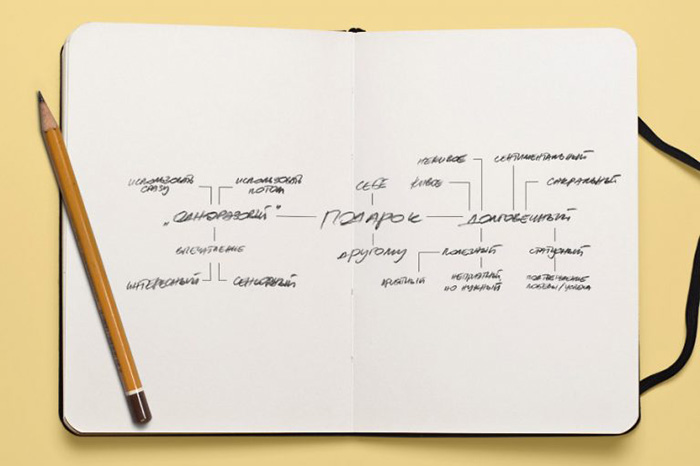 НЕЖИВОЕ
СЕНТИМЕНТАЛЬНЫЙ
ИСПОЛЬЗОВАТЬ
СРАЗУ
ИСПОЛЬЗОВАТЬ
ПОТОМ
СЕБЕ
ЖИВОЕ
САКРАЛЬНЫЙ
„ОДНОРАЗОВЫЙ“
ПОДАРОК
ДОЛГОВЕЧНЫЙ
ВПЕЧАТЛЕНИЕ
ДРУГОМУ
ПОЛЕЗНЫЙ
СТАТУСНЫЙ
ИНТЕРЕСНЫЙ
СЕНСОРНЫЙ
ПРИЯТНЫЙ
НЕПРИЯТНЫЙ
НО НУЖНЫЙ
ПОДТВЕРЖДЕНИЕ
ПОБЕДЫ/УСПЕХА